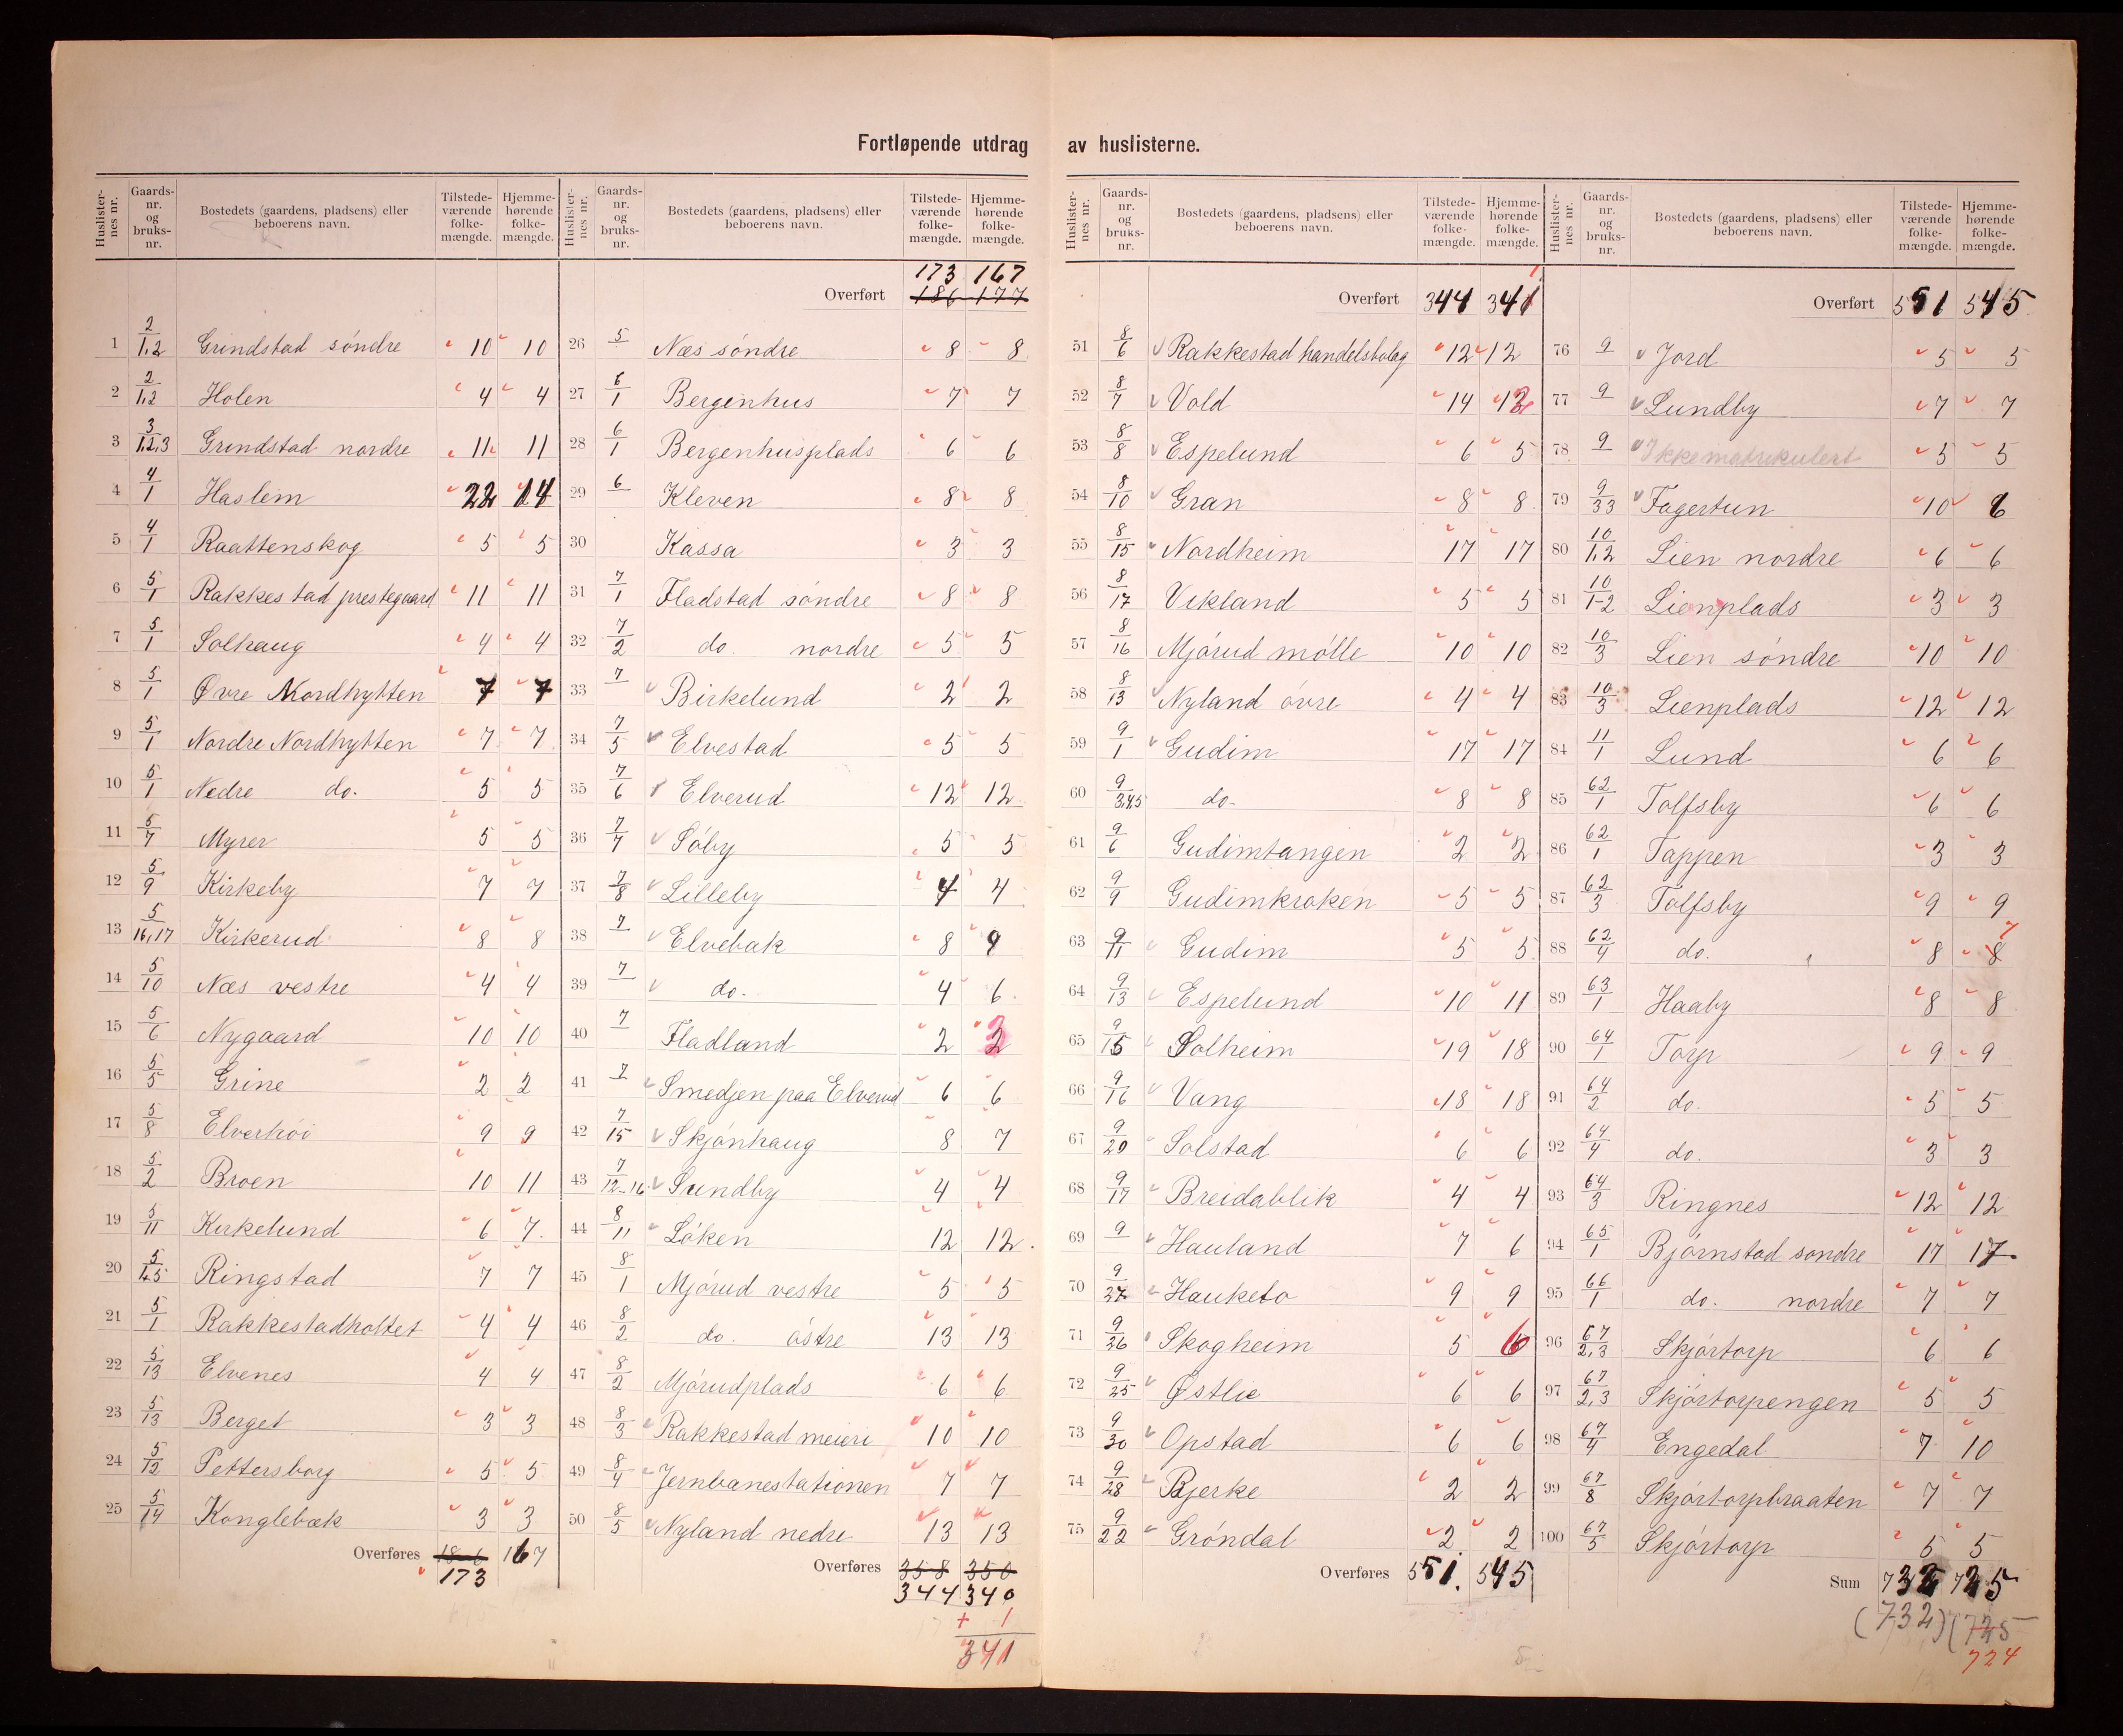 Fortløpende utdrag av huslisterne.
Huslisternes nr. | Gaards-nr. og bruks-nr. | Bostedets (gaardens, pladsens) eller beboerens navn. | Tilstedeværende folkemængde. | Hjemmehørende folkemængde.
1 2/1,2 Grindstad söndre 10 10
2 2/1,2 Holen 4 4
3 3/1,2,3 Grindstad nordre 11 11
4 4/1 Haslem 22 14
5 4/1 Raattenskog 5 5
6 5/1 Rakkestad prestegaard 11 11
7 5/1 Solhaug 4 4
8 5/1 Øvre Nordhytten 7 7
9 5/1 Nordre Nordhytten 7 7
10 5/1 Nedre do. 5 5
11 5/7 Myrer 5 5
12 5/9 Kirkeby 7 7
13 5/16,17 Kirkerud 8 8
14 5/10 Næs vestre 4 4
15 5/6 Nygaard 10 10
16 5/5 Grine 2 2
17 5/8 Elverhöi 9 9
18 5/2 Broen 10 11
19 5/11 Kirkelund 6 7.
20 5/4,5 Ringstad 7 7
21 5/1 Rakkestadholtet 4 4
22 5/13 Elvenes 4 4
23 5/13 Berget 3 3
24 5/12 Pettersborg 5 5
25 5/14 Konglebæk 3 3
Overføres 186 167
173
Huslisternes nr. | Gaards-nr. og bruks-nr. | Bostedets (gaardens, pladsens) eller beboerens navn. | Tilstedeværende folkemængde. | Hjemmehørende folkemængde.
173 167
Overført 186 177
26 5/ Næs söndre 8 8
27 6/1 Bergenhus 7 7
28 6/1 Bergenhusplads 6 6
29 6/ Kleven 8 8
30 Kassa 3 3
31 7/1 Fladstad söndre 8 8
32 7/2 do. nordre 5 5
33 7/ Birkelund 2 2
34 7/5 Elvestad 5 5
35 7/6 Elverud 12 12
36 7/7 Söby 5 5
37 7/8 Lilleby 4 4
38 7/ Elvebak 8 9
39 7/ do. 4 6.
40 7/ Fladland 2 2
41 7/ Smedjen paa Elverud 6 6
42 7/15 Skjönhaug 8 7
43 7/12-16 Sundby 4 4
44 8/11 Löken 12 12.
45 8/1 Mjörud vestre 5 5
46 8/2 do. östre 13 13
47 8/2 Mjörudplads 6 6
48 8/3 Rakkestad meieri 10 10
49 8/4 Jernbanestationen 7 7
50 8/5 Nyland nedre 13 13
Overføres 358 350
344 340
+ 1
341
Huslisternes nr. | Gaards-nr. og bruks-nr. | Bostedets (gaardens, pladsens) eller beboerens navn. | Tilstedeværende folkemængde. | Hjemmehørende folkemængde.
Overført 344 341
51 8/6 Rakkestad handelsbolag 12 12
52 8/7 Vold 14 12
53 8/8 Espelund 6 5
54 8/10 Gran 8 8
55 8/15 Nordheim 17 17
56 8/17 Vikland 5 5
57 8/16 Mjörud mölle 10 10
58 8/13 Nyland övre 4 4
59 9/1 Gudim 17 17
60 9/3,4,5 do. 8 8
61 9/6 Gudimtangen 2 2
62 9/9 Gudimkroken 5 5
63 9/11 Gudim 5 5
64 9/13 Espelund 10 11
65 9/15 Solheim 19 18
66 9/16 Vang 18 18
67 9/20 Solstad 6 6
68 9/17 Breidablik 4 4
69 9/ Hauland 7 6
70 9/27 Hauketo 9 9
71 9/26 Skogheim 5 6
72 9/25 Østlie 6 6
73 9/30 Opstad 6 6
74 9/28 Bjerke 2 2
75 9/22 Gröndal 2 2
Overføres 551. 545
Huslisternes nr. | Gaards-nr. og bruks-nr. | Bostedets (gaardens, pladsens) eller beboerens navn. | Tilstedeværende folkemængde. | Hjemmehørende folkemængde.
Overført 551 545
76 9/ Jord 5 5
77 9/ Lundby 7 7
78 9/ Ikke matrikulert 5 5
79 9/33 Fagertun 10 6
80 10/1,2 Lien nordre 6 6
81 10/1-2 Lienplads 3 3
82 10/3 Lien söndre 10 10
83 10/3 Lienplads 12 12
84 11/1 Lund 6 6
85 62/1 Tolfsby 6 6
86 62/1 Tappen 3 3
87 62/3 Tolfsby 9 9
88 62/4 do. 8 8 7
89 63/1 Haaby 8 8
90 64/1 Torp 9 9
91 64/2 do. 5 5
92 64/4 do. 3 3
93 64/3 Ringnes 12 12
94 65/1 Björnstad sondre 17 17.
95 66/1 do. nordre 7 7
96 67/2,3 Skjörtorp 6 6
97 67/2,3 Skjörtorpengen 5 5
98 67/4 Engedal 7 10
99 67/8 Skjörtorpbraaten 7 7
100 67/5 Skjörtorp 5 5
Sum 732 725
(732) (725
724